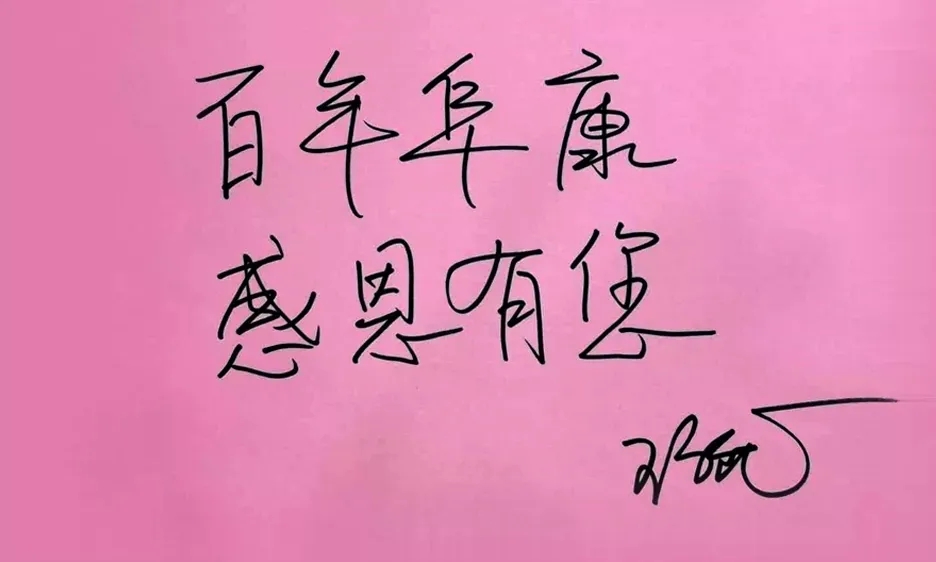 百年阜康
感恩有您